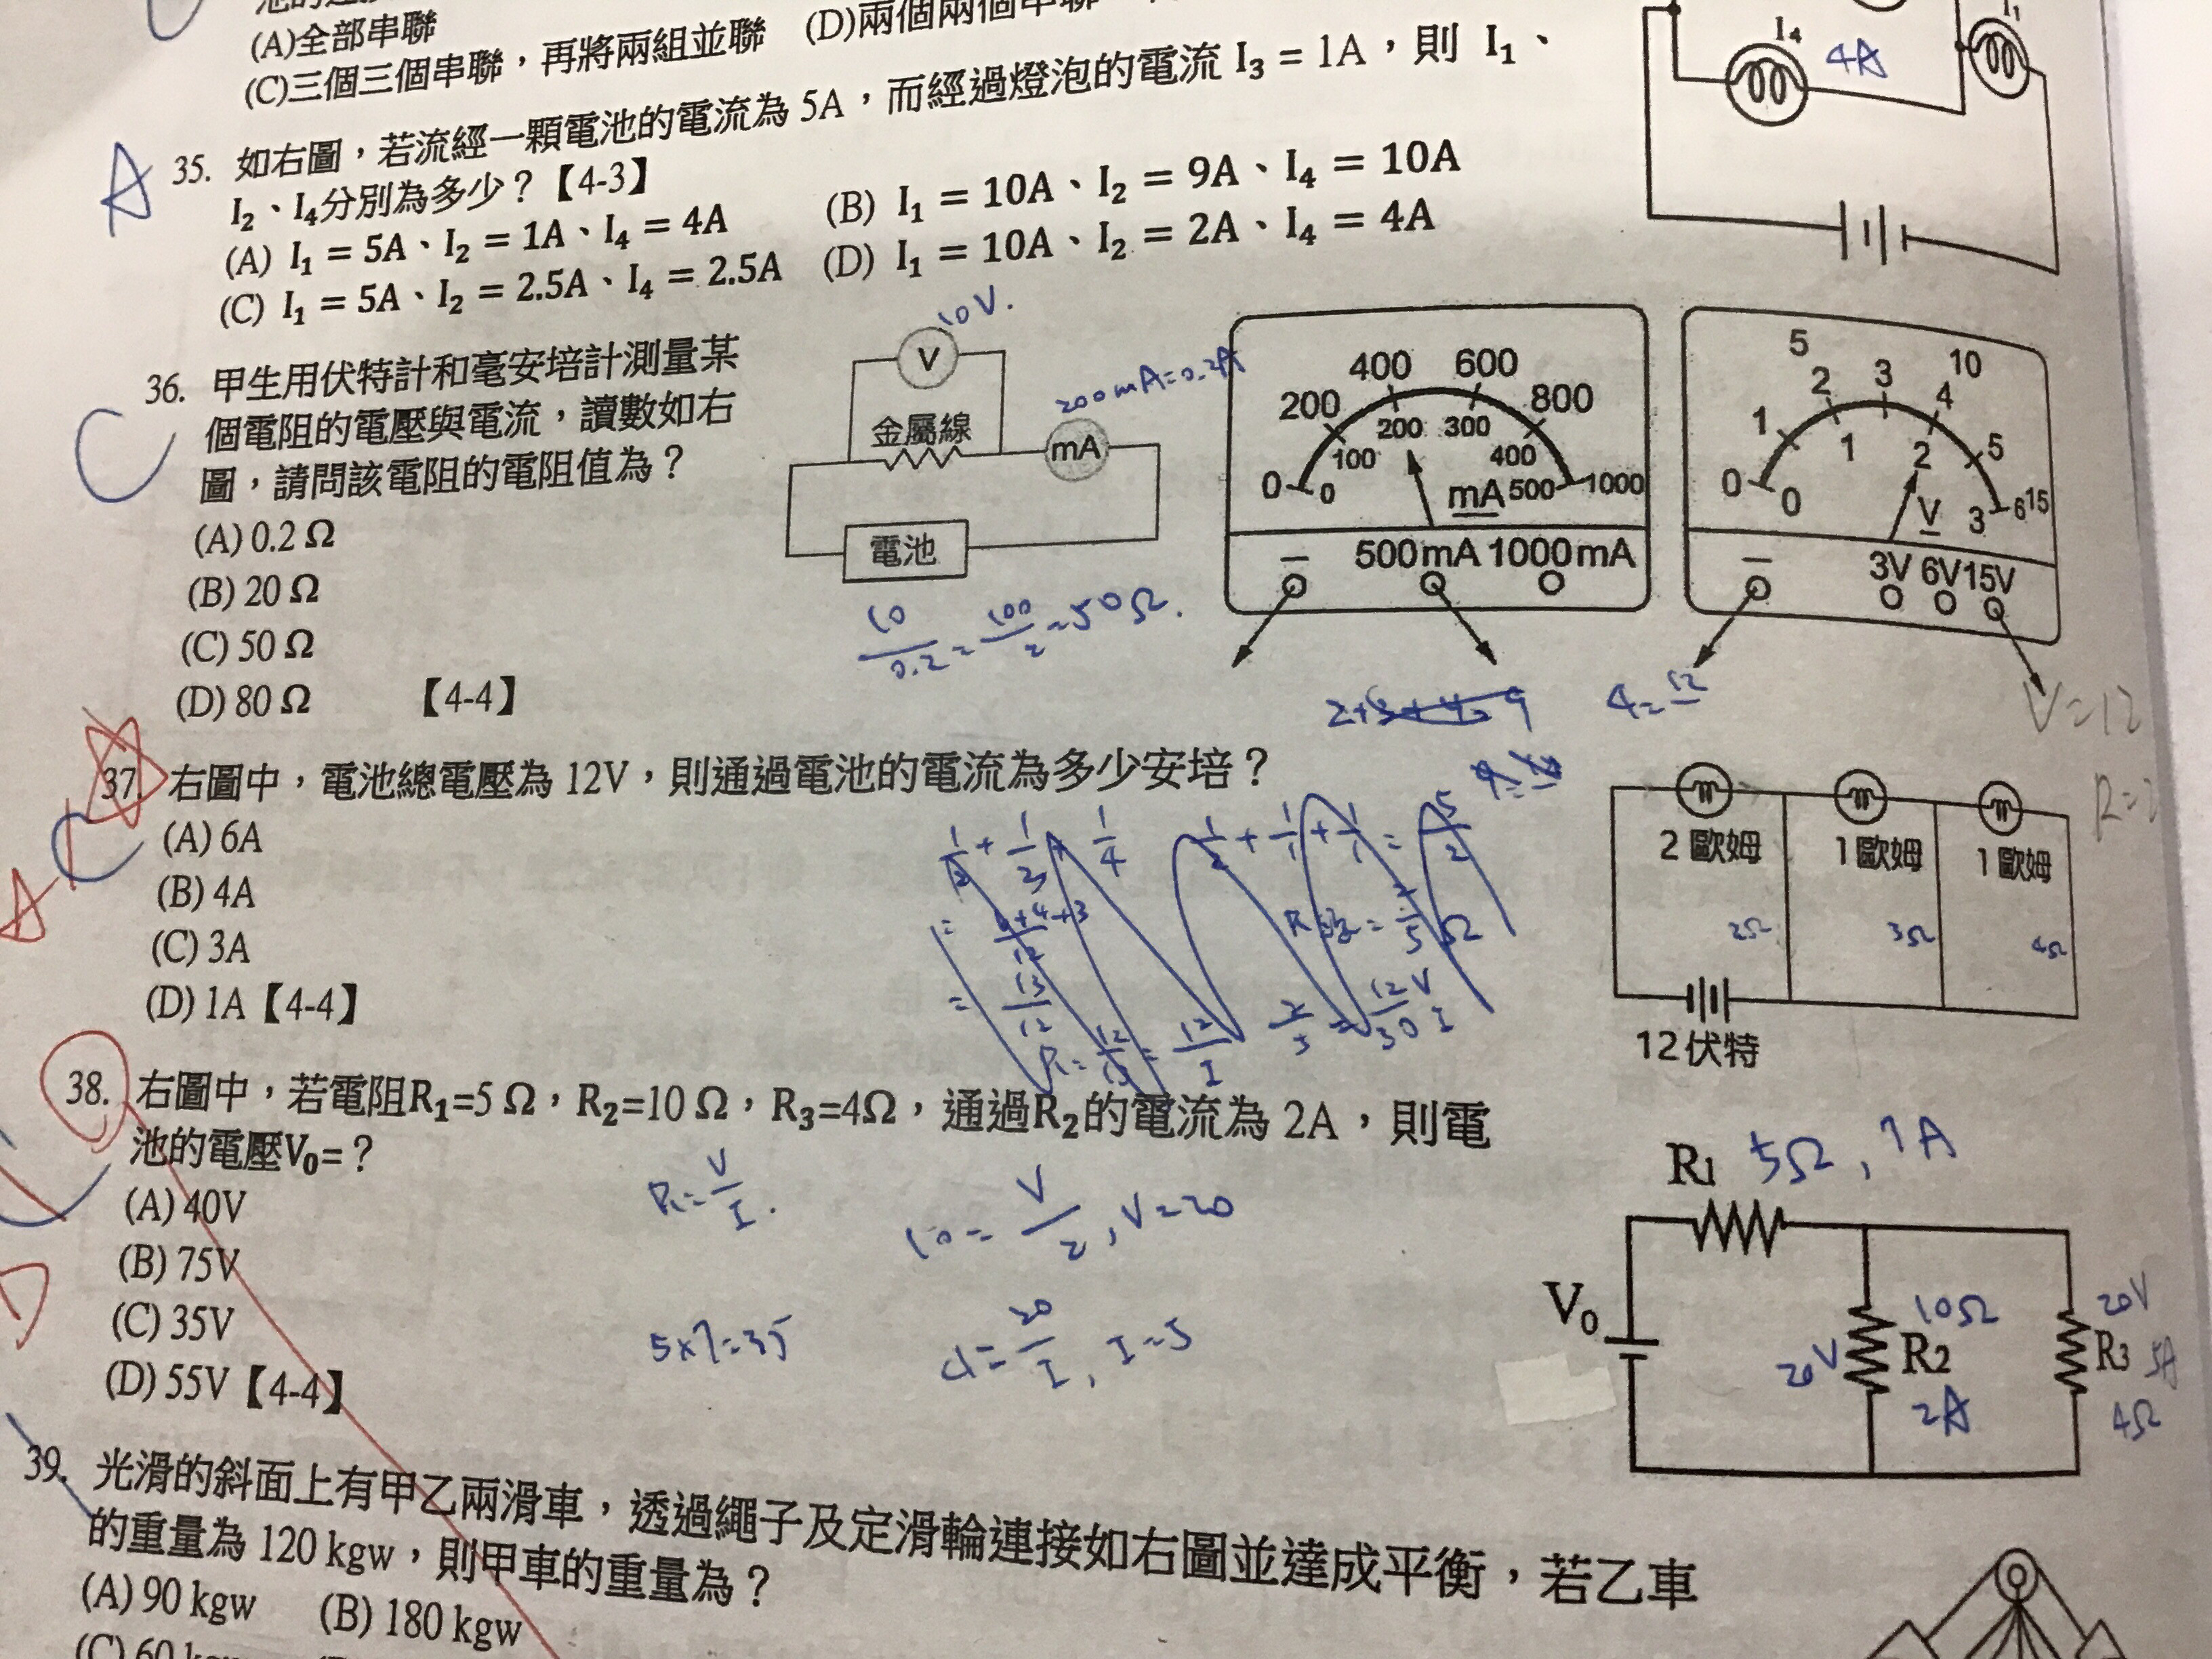 (A)全部串聯
(C)三個三個串聯，再將兩組並聯 (D)兩個兩個串聯
A
35. 如右圖，若流經一顆電池的電流為 5A，而經過燈泡的電流 I₃ = 1A，則 I₁、
I₂、I₄分別為多少？【4-3】
(A) I₁ = 5A、I₂ = 1A、I₄ = 4A (B) I₁ = 10A、I₂ = 9A、I₄ = 10A
(C) I₁ = 5A、I₂ = 2.5A、I₄ = 2.5A (D) I₁ = 10A、I₂ = 2A、I₄ = 4A
I₄ 4A
I₁
C
36. 甲生用伏特計和毫安培計測量某
個電阻的電壓與電流，讀數如右
圖，請問該電阻的電阻值為？
(A) 0.2 Ω
(B) 20 Ω
(C) 50 Ω
(D) 80 Ω 【4-4】
10V.
V
200mA=0.2A
金屬線
mA
電池
10/0.2 = 100/2 = 50Ω.
200 400 600 800
100 200 300 400
0 0 mA 500 1000
— 500mA 1000mA
5 10
1 2 3 4 5
1 2
0 0 V 3 6 15
— 3V 6V 15V
V=12
37. 右圖中，電池總電壓為 12V，則通過電池的電流為多少安培？
(A) 6A
(B) 4A
(C) 3A
(D) 1A【4-4】
C
A
1/2 + 1/3 + 1/4
1/2 + 1/1 + 1/1 = 5/2
= 13/12
2歐姆 1歐姆 1歐姆
2Ω 3Ω 4Ω
12伏特
38. 右圖中，若電阻R₁=5 Ω，R₂=10 Ω，R₃=4Ω，通過R₂的電流為 2A，則電
池的電壓V₀=？
(A) 40V
(B) 75V
(C) 35V
(D) 55V【4-4】
D
R=V/I.
10=V/2, V=20
5×7=35
4=20/I, I=5
R1 5Ω, 7A
V₀
10Ω
20V R2
2A
20V
R3 5A
4Ω
39. 光滑的斜面上有甲乙兩滑車，透過繩子及定滑輪連接如右圖並達成平衡，若乙車
的重量為 120 kgw，則甲車的重量為？
(A) 90 kgw (B) 180 kgw